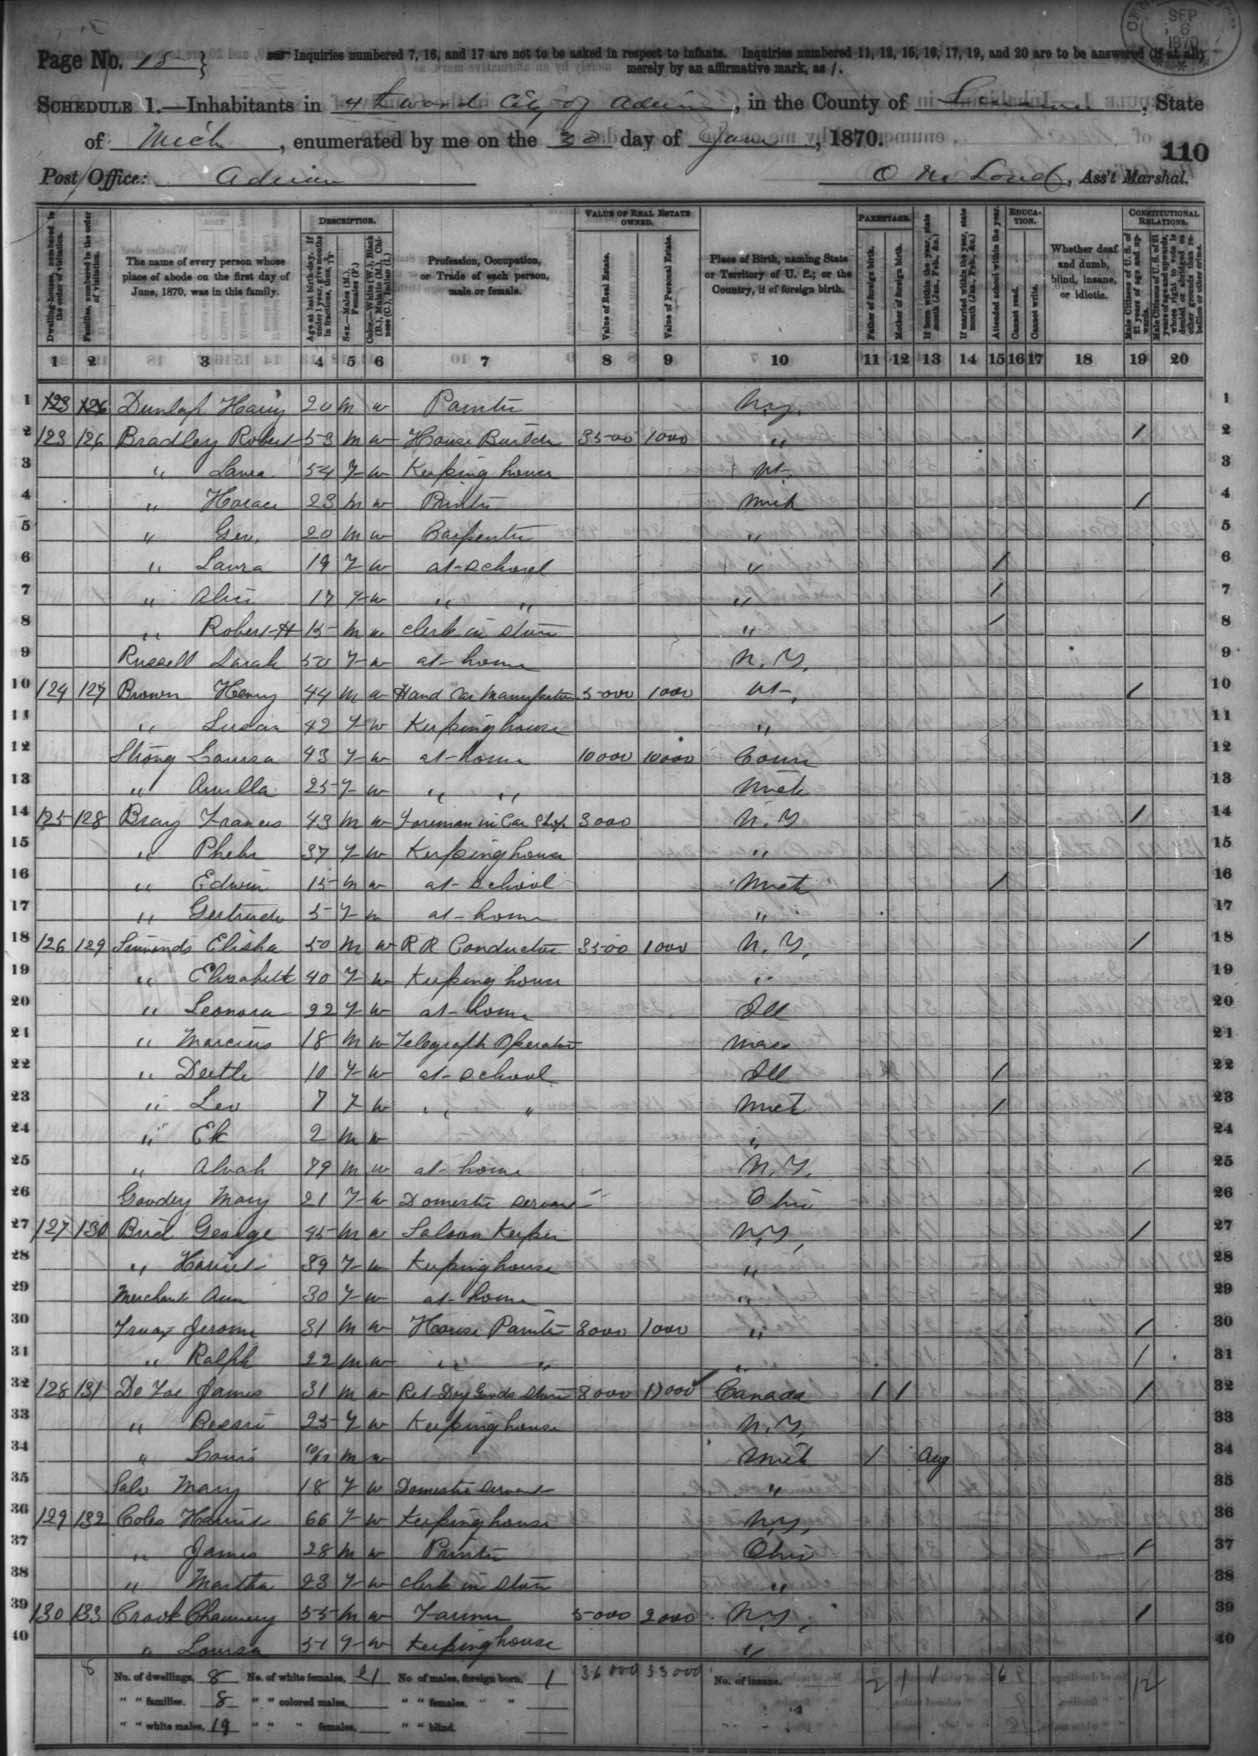 Page No. 15
Inquiries numbered 7, 16, and 17 are not to be asked in respect to infants. Inquiries numbered 11, 12, 15, 16, 17, 19, and 20 are to be answered (if at all)
merely by an affirmative mark, as /.
SEP 6 1870
SCHEDULE 1.—Inhabitants in 4th ward City of Adrian, in the County of , State
of Mich, enumerated by me on the day of June, 1870.
110
Post Office: Adrian
O M Loud, Ass't Marshal.
DESCRIPTION. VALUE OF REAL ESTATE OWNED. PARENTAGE. EDUCATION. CONSTITUTIONAL RELATIONS.
Dwelling-houses, numbered in the order of visitation.
Families, numbered in the order of visitation.
The name of every person whose place of abode on the first day of June, 1870, was in this family.
Profession, Occupation, or Trade of each person, male or female.
Value of Real Estate.
Value of Personal Estate.
Place of Birth, naming State or Territory of U. S.; or the Country, if of foreign birth.
Father of foreign birth.
Mother of foreign birth.
Attended school within the year.
Cannot read.
Cannot write.
Whether deaf and dumb, blind, insane, or idiotic.
1 2 3 4 5 6 7 8 9 10 11 12 13 14 15 16 17 18 19 20
1 123 126 Dunlap Harry 20 m w Painter N.Y. 1
2 123 126 Bradley Robert 53 m w House Builder 3500 1000 " / 2
3 " Laura 54 F w Keeping house Vt. 3
4 " Horace 23 m w Painter Mich / 4
5 " Geo. 20 m w Carpenter " 5
6 " Laura 19 F w at-school " / 6
7 " Alice 17 F w " " " / 7
8 " Robert H 15 m w clerk in store " / 8
9 Russell Sarah 50 F w at-home N.Y. 9
10 124 127 Brown Henry 44 m w Hand Car Manufacturer 5000 1000 Vt. / 10
11 " Susan 42 F w Keeping house " 11
12 Strong Louisa 43 F w at-home 10000 10000 Conn 12
13 " 25 F w " " Mich 13
14 125 128 Bray Francis 43 m w Foreman in Car Shop 3000 N.Y / 14
15 " Phebe 37 F w Keeping house " 15
16 " Edwin 15 m w at-school Mich / 16
17 " Gertrude 5 F w at-home " 17
18 126 129 Simonds Elisha 50 m w RR Conductor 3500 1000 N.Y. / 18
19 " Elisabeth 40 F w Keeping house " 19
20 " Leonora 22 F w at-home Ill 20
21 " Marcius 18 m w Telegraph Operator Mass 21
22 " 10 F w at-school Ill / 22
23 " Leo 7 F w " " Mich / 23
24 " Ek 2 m w " 24
25 " Alvah 79 m w at-home N.Y. / 25
26 Goodey Mary 21 F w Domestic Servant Ohio 26
27 127 130 George 45 m w Saloon Keeper N.Y. / 27
28 " Harriet 39 F w Keeping house " 28
29 Merchant Ann 30 F w at-home " 29
30 Truax Jerome 31 m w House Painter 3000 1000 " / 30
31 " Ralph 22 m w " " " / 31
32 128 131 De Foe James 31 m w Ret Dry Goods Store 8000 Canada / / / 32
33 " Bessie 25 F w Keeping house N.Y. 33
34 " Louis 10/12 m w Mich / Aug 34
35 Mary 18 F w Domestic Servant " 35
36 129 132 Coles Harriet 66 F w Keeping house N.Y. 36
37 " James 28 m w Painter Ohio / 37
38 " Martha 23 F w clerk in store " 38
39 130 133 Crook Chauncey 55 m w Farmer 5000 2000 N.Y. / 39
40 " Louisa 51 F w Keeping house " 40
8 No. of dwellings, 8 No. of white females, 21 No. of males, foreign born, 1 36000 33000 No. of insane. 2 1 1 6 12
" " families. 8 " " colored males, " " females, " "
" " white males, 19 " " " females, " " blind.